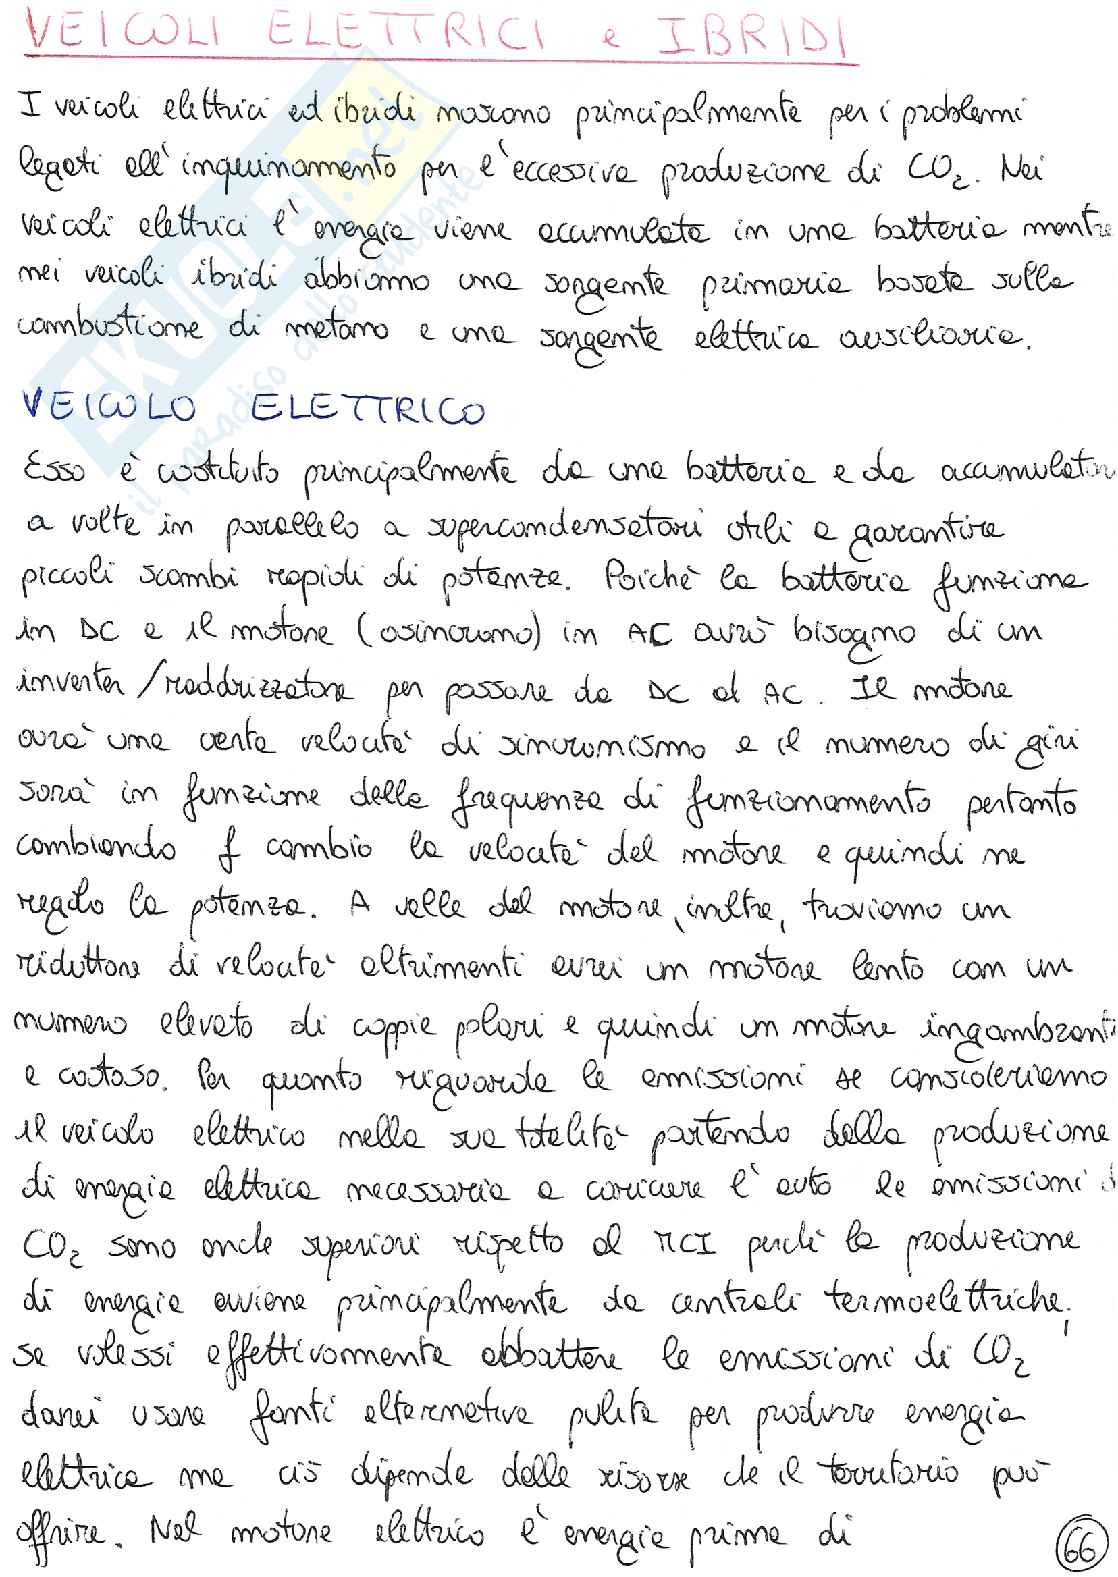 VEICOLI ELETTRICI e IBRIDI
I veicoli elettrici ed ibridi nascono principalmente per i problemi
legati all'inquinamento per l'eccessiva produzione di CO2. Nei
veicoli elettrici l'energia viene accumulata in una batteria mentre
nei veicoli ibridi abbiamo una sorgente primaria basata sulla
combustione di metano e una sorgente elettrica ausiliaria.
VEICOLO ELETTRICO
Esso è costituito principalmente da una batteria e da accumulatori
a volte in parallelo a supercondensatori utili a garantire
piccoli scambi rapidi di potenza. Poichè la batteria funziona
in DC e il motore (asincrono) in AC avrò bisogno di un
inverter/raddrizzatore per passare da DC ad AC. Il motore
avrà una certa velocità di sincronismo e il numero di giri
sarà in funzione della frequenza di funzionamento pertanto
cambiando f cambio la velocità del motore e quindi ne
regolo la potenza. A valle del motore, inoltre, troviamo un
riduttore di velocità altrimenti avrei un motore lento con un
numero elevato di coppie polari e quindi un motore ingombrante
e costoso. Per quanto riguarda le emissioni se consideriamo
il veicolo elettrico nella sua totalità partendo dalla produzione
di energia elettrica necessaria a caricare l'auto le emissioni di
CO2 sono anche superiori rispetto al MCI perchè la produzione
di energia avviene principalmente da centrali termoelettriche;
se volessi effettivamente abbattere le emissioni di CO2
dovrei usare fonti alternative pulite per produrre energia
elettrica ma ciò dipende dalle risorse che il territorio può
offrire. Nel motore elettrico l'energia prima di
66
EKUOLE.net
il paradiso dello studente